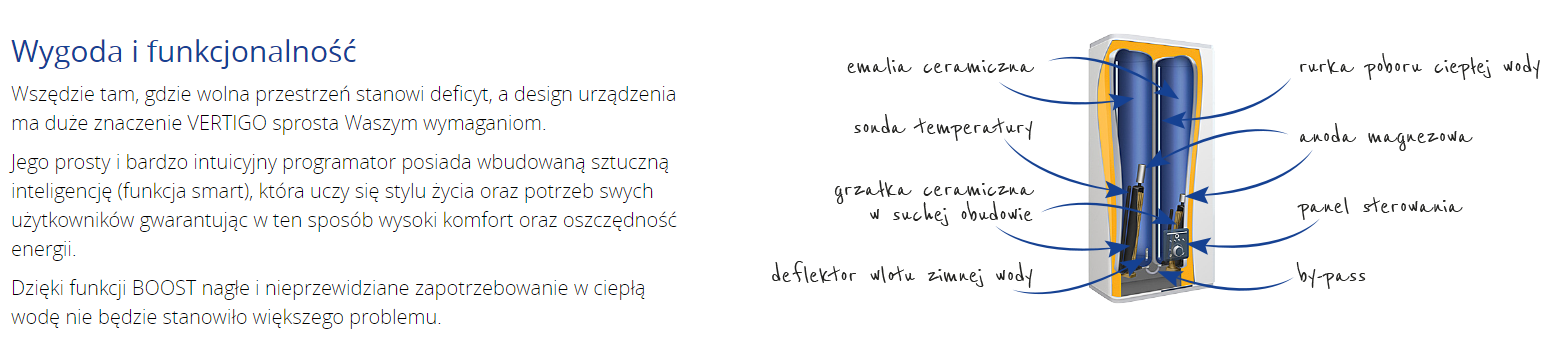 Wygoda i funkcjonalność
Wszędzie tam, gdzie wolna przestrzeń stanowi deficyt, a design urządzenia
ma duże znaczenie VERTIGO sprosta Waszym wymaganiom.
Jego prosty i bardzo intuicyjny programator posiada wbudowaną sztuczną
inteligencję (funkcja smart), która uczy się stylu życia oraz potrzeb swych
użytkowników gwarantując w ten sposób wysoki komfort oraz oszczędność
energii.
Dzięki funkcji BOOST nagłe i nieprzewidziane zapotrzebowanie w ciepłą
wodę nie będzie stanowiło większego problemu.
emalia ceramiczna
sonda temperatury
grzałka ceramiczna
w suchej obudowie
deflektor wlotu zimnej wody
rurka poboru ciepłej wody
anoda magnezowa
panel sterowania
by-pass